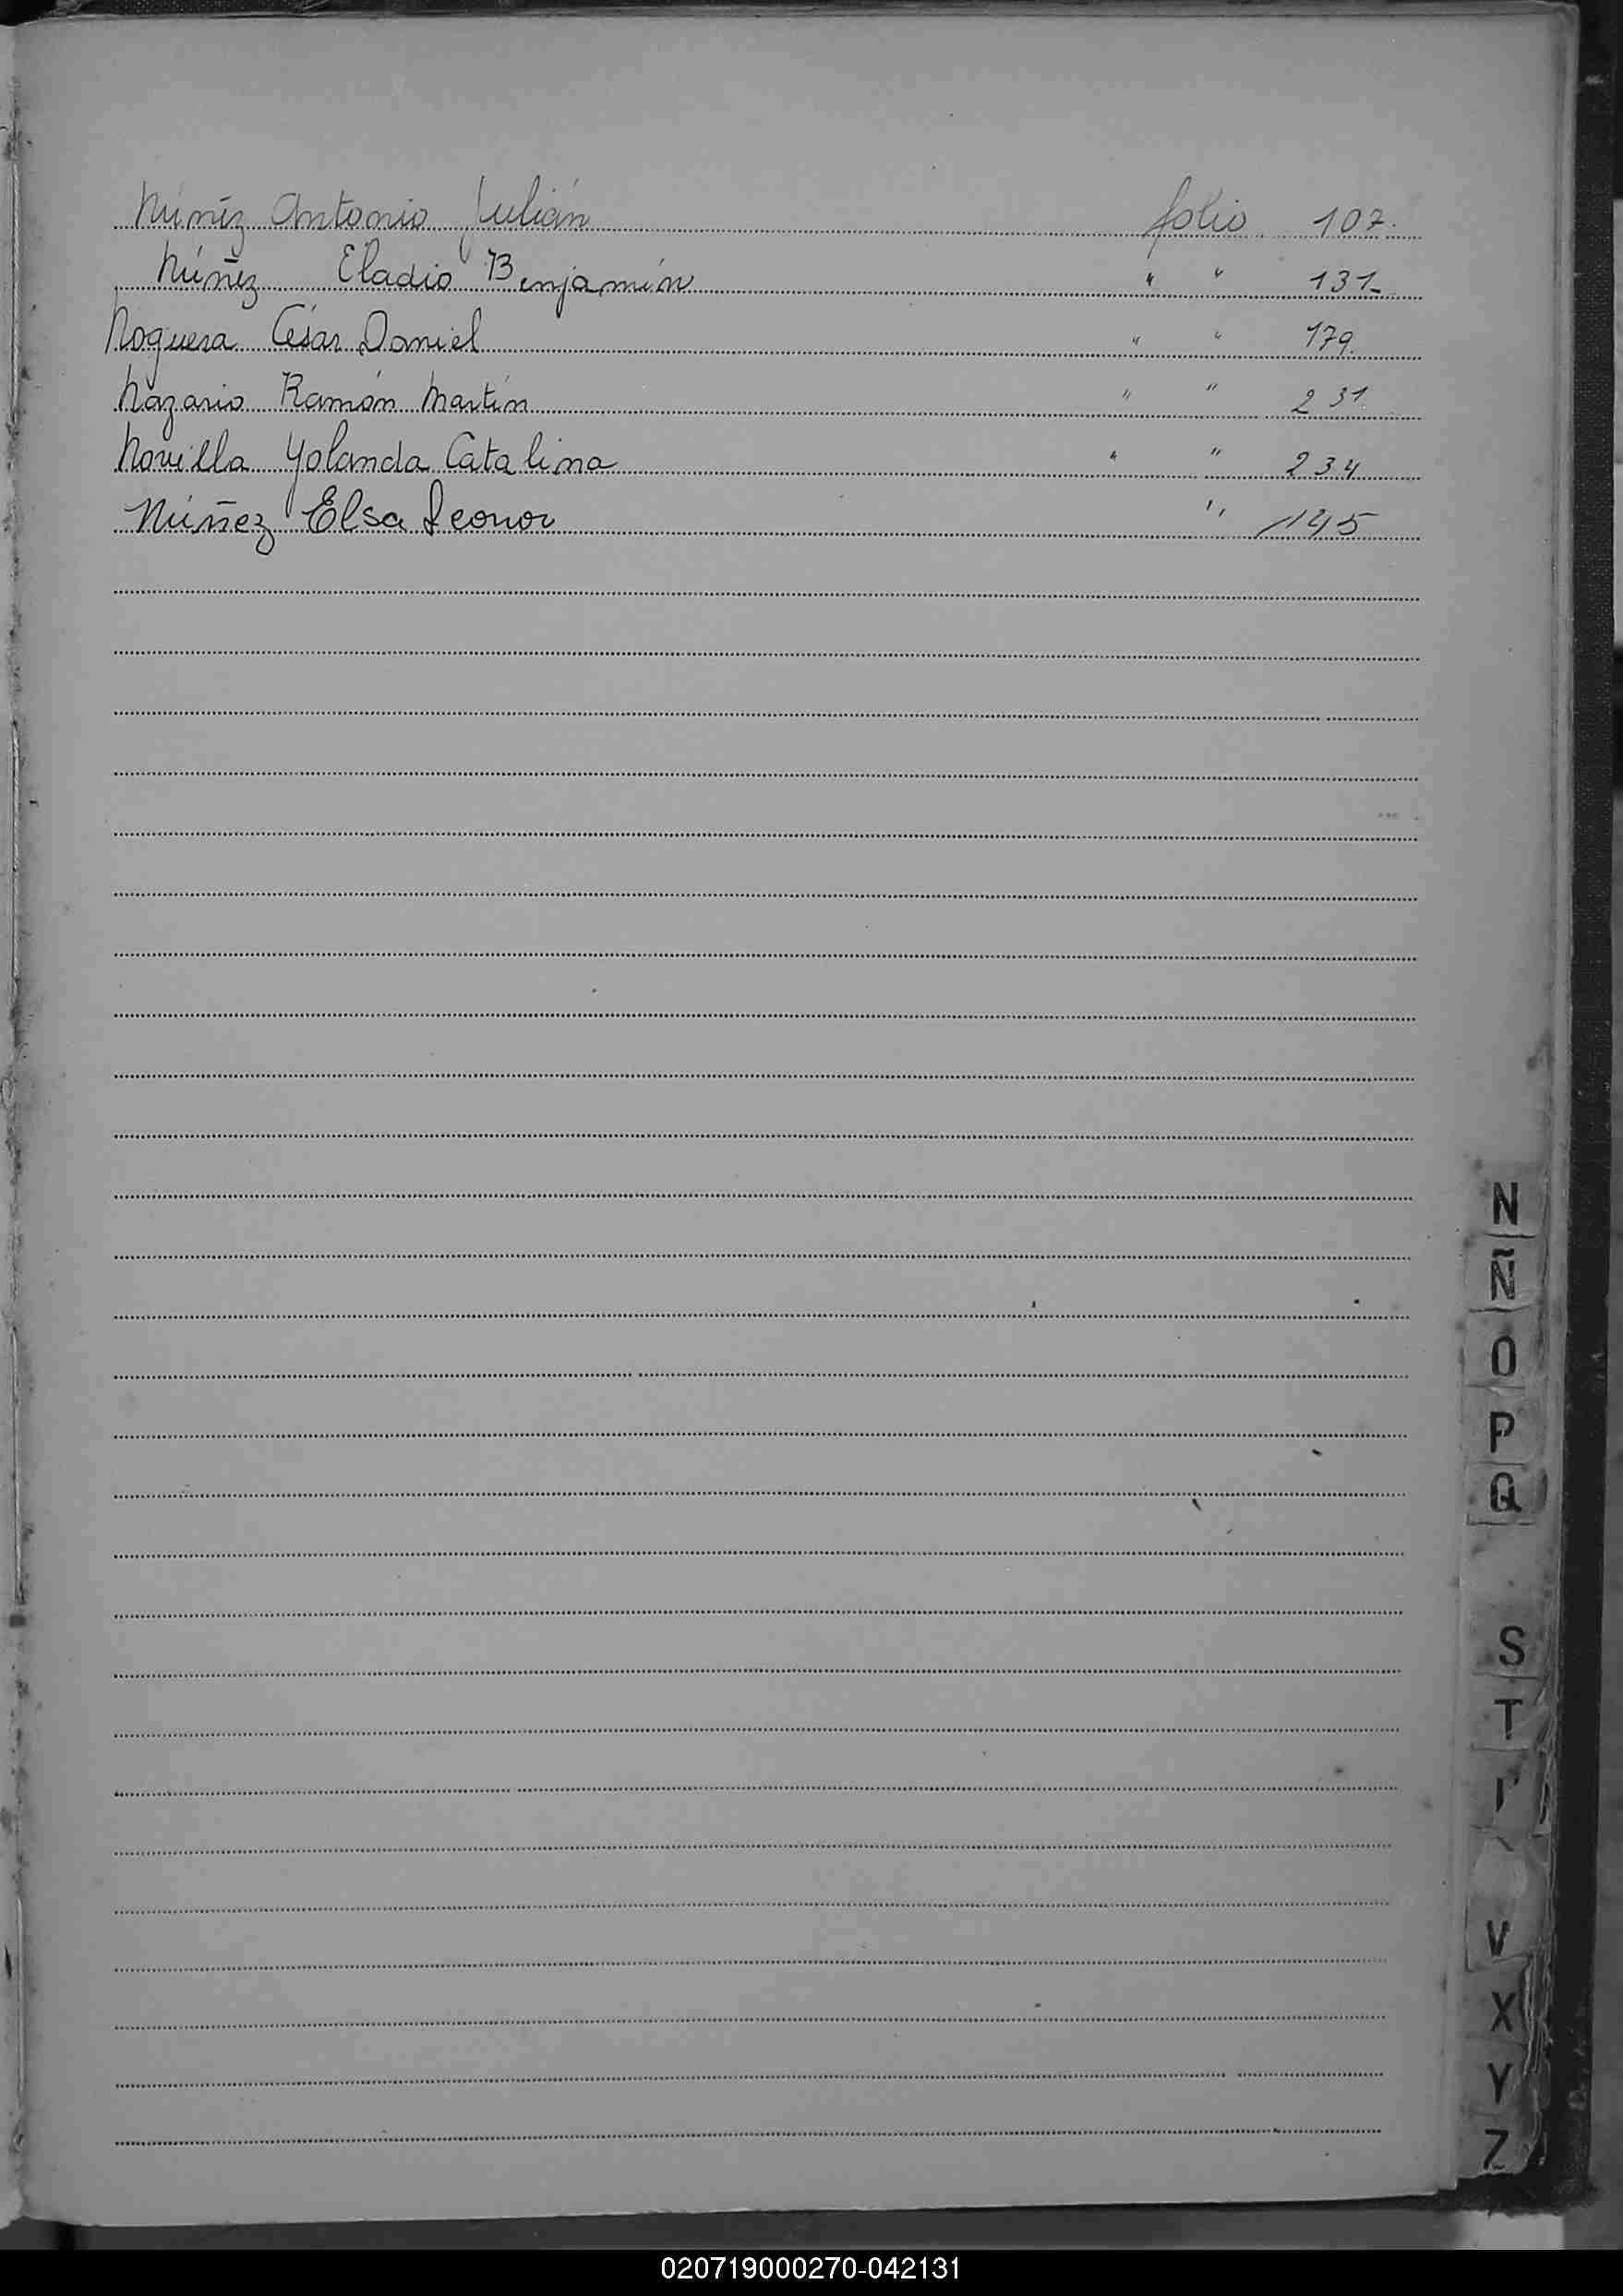 Núñez Antonio Julián folio 107.
Núñez Eladio Benjamín " " 131-
Noguera César Daniel " " 179.
Nazario Ramón Martín " " 231
Novilla Yolanda Catalina " " 234
Núñez Elsa Leonor " 145
N
Ñ
O
P
Q
S
T
V
X
Y
Z
020719000270-042131